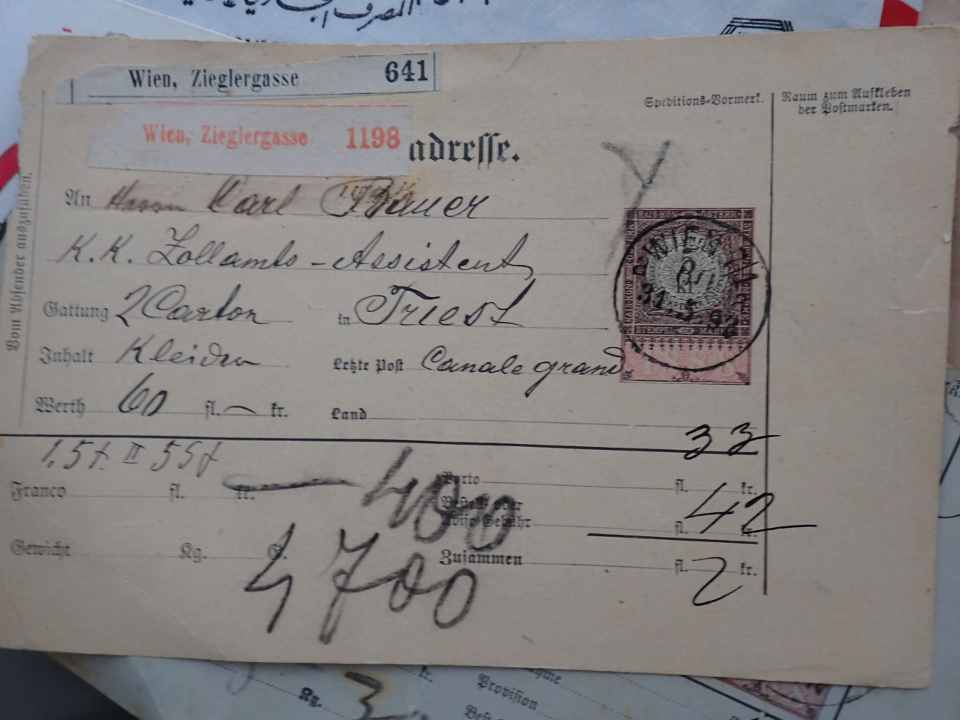 المصرف
Wien, Zieglergasse 641
Wien, Zieglergasse 1198
adresse.
Speditions-Vormerk.
Raum zum Aufkleben
der Postmarken.
Vom Absender auszufüllen.
An Herrn Carl Bauer
K.K. Zollamts-Assistent
Gattung 2 Carton in Triest
Inhalt Kleider Letzte Post Canale grand
Werth 60 fl. — kr. Land
WIEN
31.5.92
STEMPEL MARKE
33
1.5 f. II 55 f
Franco fl. kr. — 400
Porto fl. kr.
Bestell- oder
Aviso-Gebühr fl. 42 kr.
Gewicht Kg. G. 4 700
Zusammen fl. 2 kr.
Kg. 3 kr.
Provision